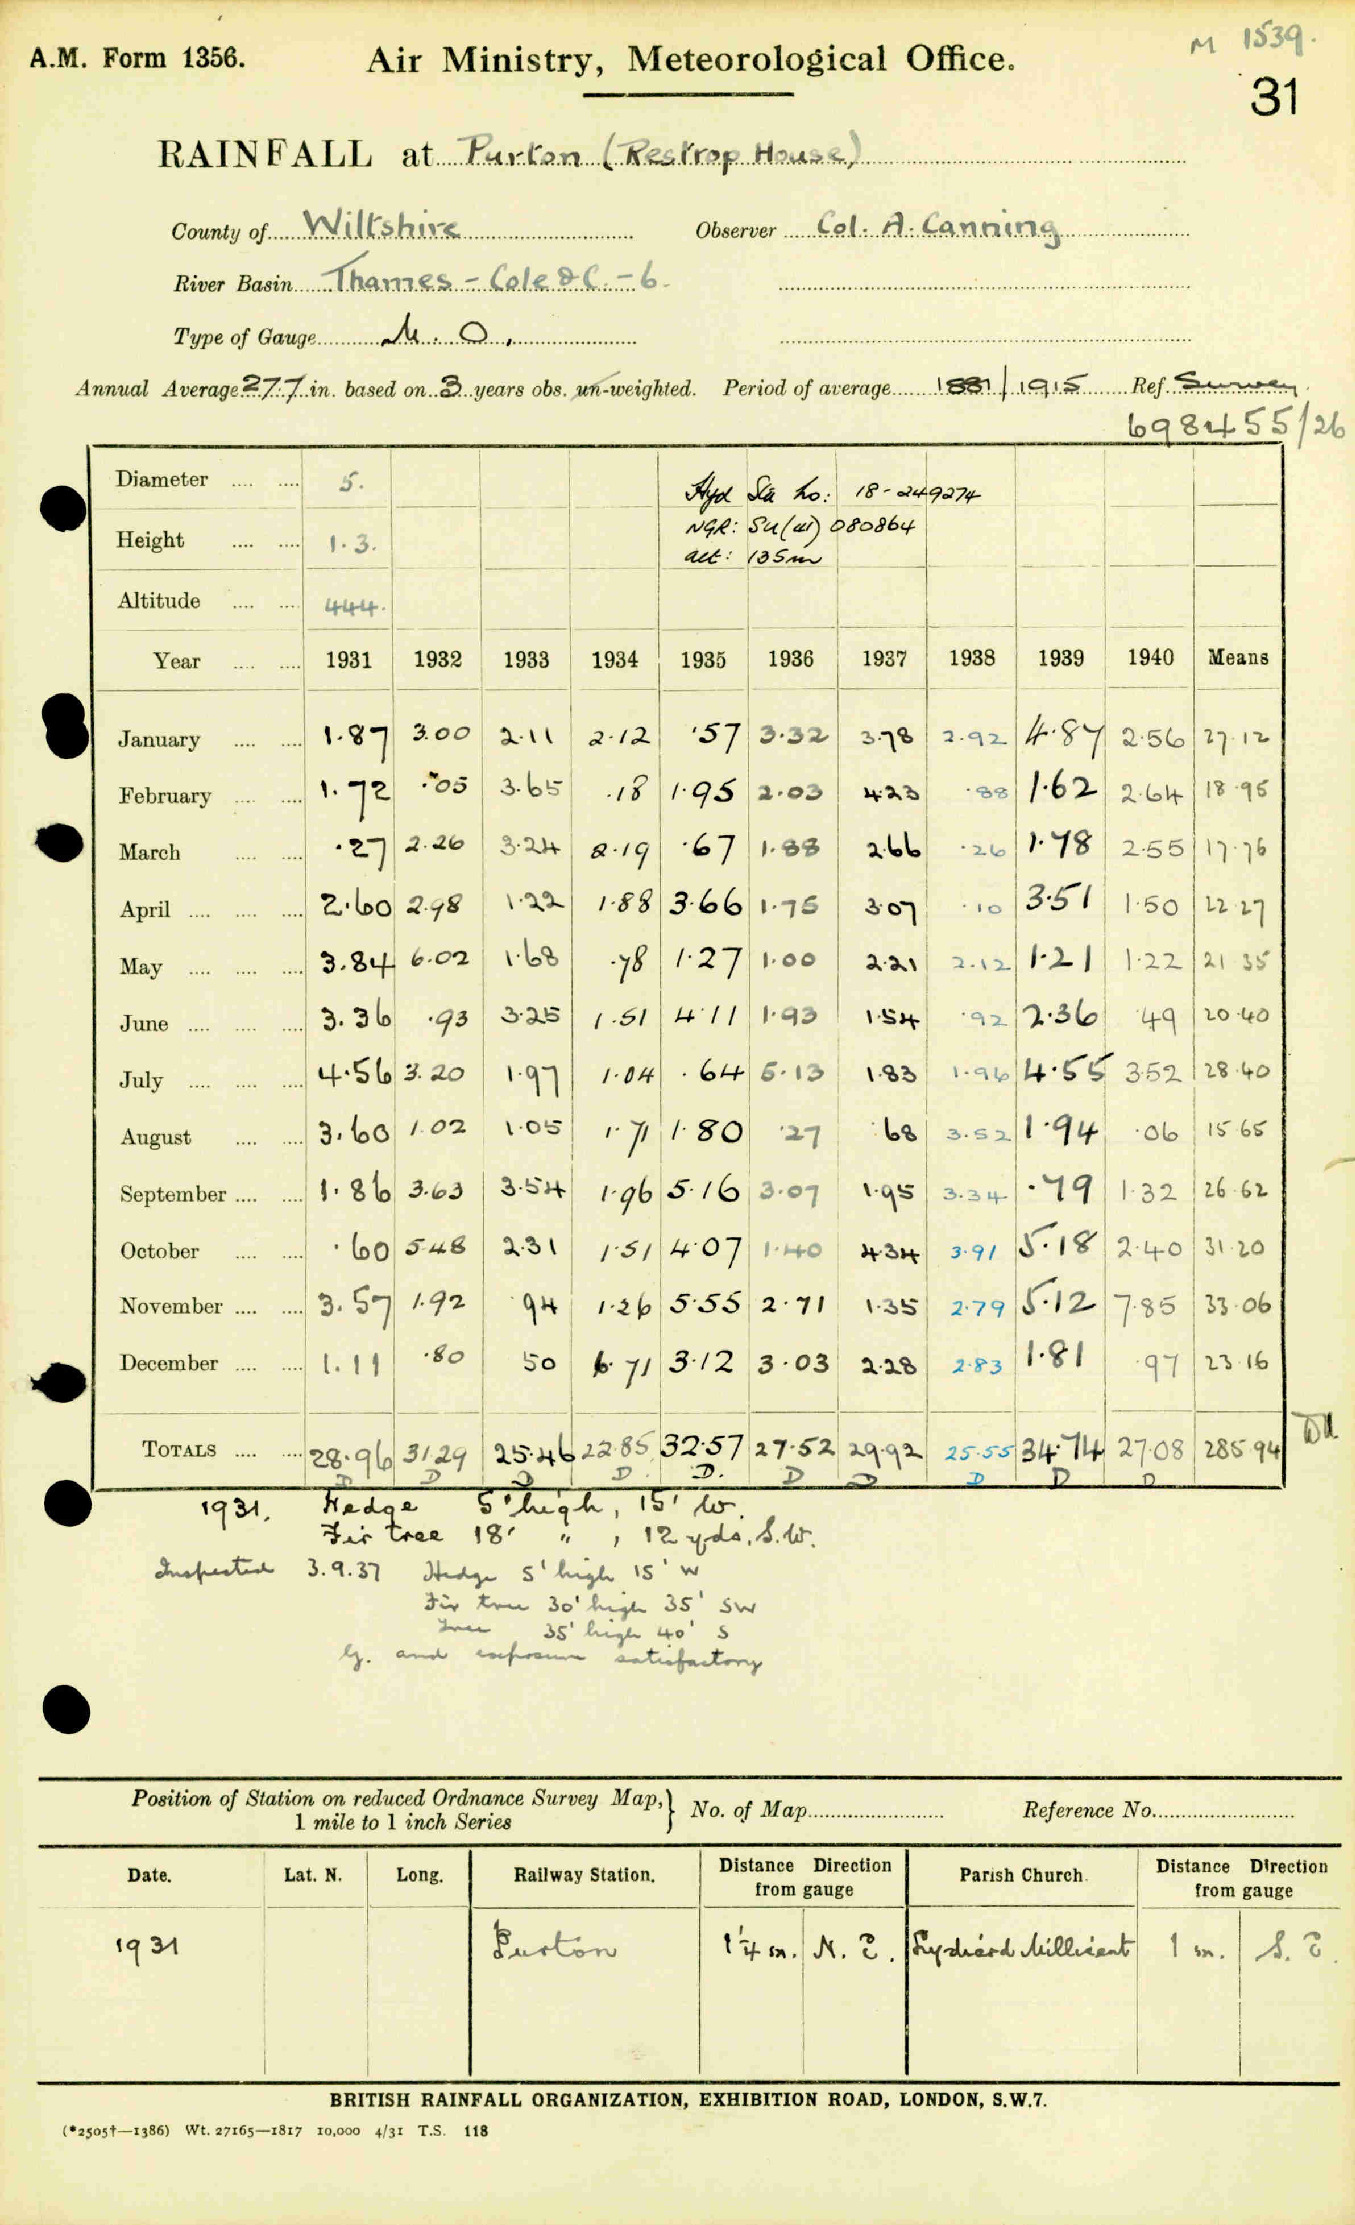 M 1539.
A.M. Form 1356. Air Ministry, Meteorological Office.
31
RAINFALL at Purton (Restrop House)
County of Wiltshire Observer Col. A. Canning
River Basin Thames - Cole &C. - 6.
Type of Gauge M. O.
Annual Average 27.7 in. based on 3 years obs. un-weighted. Period of average 1881/1915 Ref. Survey
698455/26
Diameter 5. Hyd Sta no: 18-249274
Height 1.3. NGR: SU(41) 080864
alt: 135m
Altitude 444.
Year 1931 1932 1933 1934 1935 1936 1937 1938 1939 1940 Means
January 1.87 3.00 2.11 2.12 .57 3.32 3.78 2.92 4.87 2.56 27.12
February 1.72 .05 3.65 .18 1.95 2.03 4.23 .88 1.62 2.64 18.95
March .27 2.26 3.24 2.19 .67 1.88 2.66 .26 1.78 2.55 17.76
April 2.60 2.98 1.22 1.88 3.66 1.75 3.07 .10 3.51 1.50 22.27
May 3.84 6.02 1.68 .78 1.27 1.00 2.21 2.12 1.21 1.22 21 35
June 3.36 .93 3.25 1.51 4.11 1.93 1.54 .92 2.36 49 20.40
July 4.56 3.20 1.97 1.04 .64 5.13 1.83 1.96 4.55 3.52 28.40
August 3.60 1.02 1.05 1.71 1.80 .27 .68 3.52 1.94 .06 15.65
September 1.86 3.63 3.54 1.96 5.16 3.07 1.95 3.34 .79 1.32 26.62
October .60 5.48 2.31 1.51 4.07 1.40 4.34 3.91 5.18 2.40 31.20
November 3.57 1.92 .94 1.26 5.55 2.71 1.35 2.79 5.12 7.85 33.06
December 1.11 .80 50 6.71 3.12 3.03 2.28 2.83 1.81 .97 23.16
TOTALS 28.96 31.29 25.46 22.85 32.57 27.52 29.92 25.55 34.74 27.08 285.94
D D D D. D. D D D D D
1931. Hedge 5' high, 15' W.
Fir tree 18' " , 12 yds. S.W.
Inspected 3.9.37 Hedge 5' high 15' W
Fir tree 30' high 35' SW
Tree 35' high 40' S
G. and exposure satisfactory
Position of Station on reduced Ordnance Survey Map, 1 mile to 1 inch Series } No. of Map Reference No.
Date. Lat. N. Long. Railway Station. Distance Direction from gauge Parish Church. Distance Direction from gauge
1931 Purton 1¼ m. N. E. Lydiard Millicent 1 m. S. E.
BRITISH RAINFALL ORGANIZATION, EXHIBITION ROAD, LONDON, S.W.7.
(*2505†—1386) Wt. 27165—1817 10,000 4/31 T.S. 118